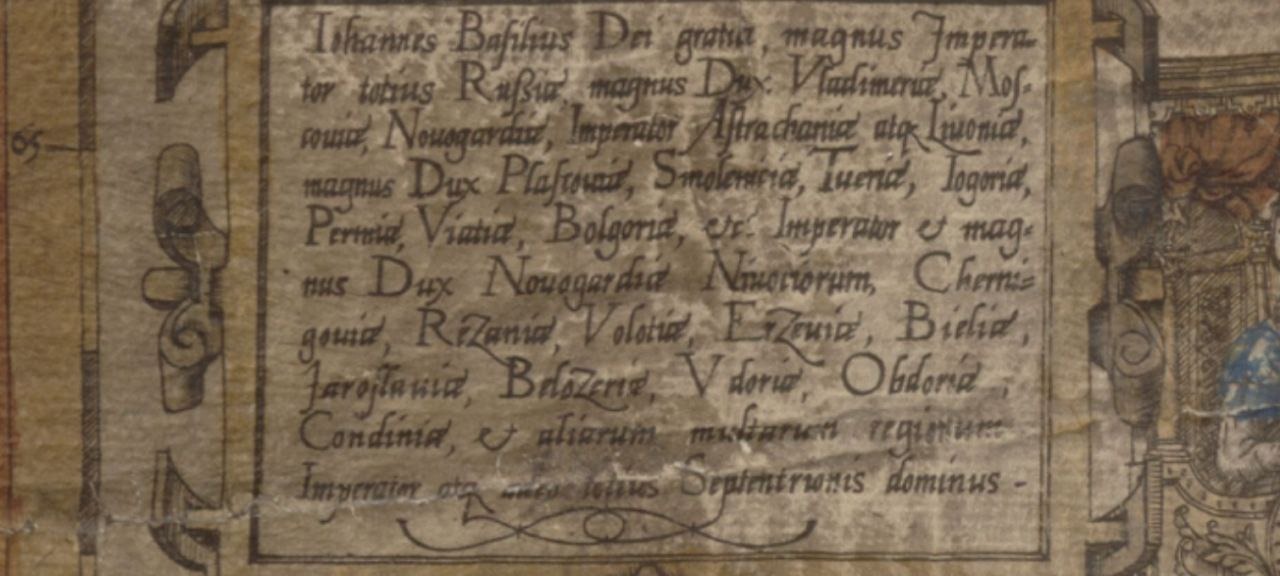 Iohannes Basilius Dei gratia, magnus Impera-
tor totius Rußiæ, magnus Dux Vladimeriæ, Mos-
couiæ, Nouogardiæ, Imperator Astrachaniæ atq Liuoniæ,
magnus Dux Plascouiæ, Smolenciæ, Tueriæ, Iogoriæ,
Permiæ, Viatiæ, Bolgoriæ, etc. Imperator & mag-
nus Dux Nouogardiæ Niuotiorum, Cherni-
gouiæ, Rezaniæ, Volotiæ, Erzeuiæ, Bieliæ,
Jaroslauiæ, Belozeriæ, Vdoriæ, Obdoriæ,
Condiniæ, & aliarum multarum regionum
Imperator atq adeo totius Septentrionis dominus -
65